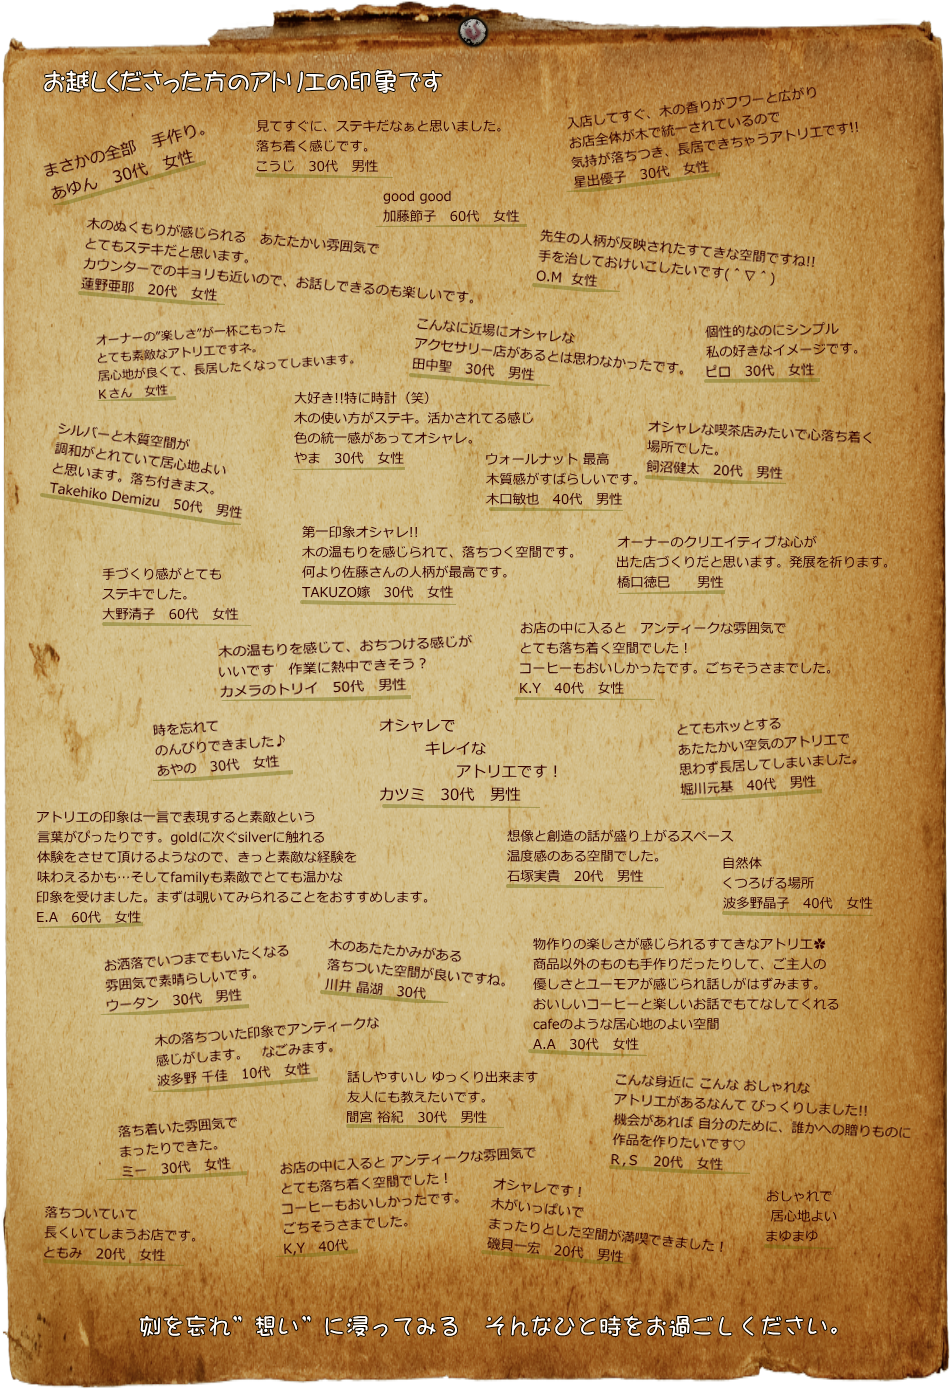 お越しくださった方のアトリエの印象です
まさかの全部　手作り。
あゆん　30代　女性
見てすぐに、ステキだなぁと思いました。
落ち着く感じです。
こうじ　30代　男性
入店してすぐ、木の香りがフワーと広がり
お店全体が木で統一されているので
気持が落ちつき、長居できちゃうアトリエです!!
星出優子　30代　女性
good good
加藤節子　60代　女性
木のぬくもりが感じられる　あたたかい雰囲気で
とてもステキだと思います。
カウンターでのキョリも近いので、お話しできるのも楽しいです。
蓮野亜耶　20代　女性
先生の人柄が反映されたすてきな空間ですね!!
手を治しておけいこしたいです(＾▽＾)
O.M 女性
オーナーの”楽しさ”が一杯こもった
とても素敵なアトリエですネ。
居心地が良くて、長居したくなってしまいます。
Kさん　女性
こんなに近場にオシャレな
アクセサリー店があるとは思わなかったです。
田中聖　30代　男性
個性的なのにシンプル
私の好きなイメージです。
ピロ　30代　女性
大好き!!特に時計（笑）
木の使い方がステキ。活かされてる感じ
色の統一感があってオシャレ。
やま　30代　女性
シルバーと木質空間が
調和がとれていて居心地よい
と思います。落ち付きまス。
Takehiko Demizu　50代　男性
ウォールナット 最高
木質感がすばらしいです。
木口敏也　40代　男性
オシャレな喫茶店みたいで心落ち着く
場所でした。
飼沼健太　20代　男性
第一印象オシャレ!!
木の温もりを感じられて、落ちつく空間です。
何より佐藤さんの人柄が最高です。
TAKUZO嫁　30代　女性
オーナーのクリエイティブな心が
出た店づくりだと思います。発展を祈ります。
橋口徳巳　　男性
手づくり感がとても
ステキでした。
大野清子　60代　女性
木の温もりを感じて、おちつける感じが
いいです　作業に熱中できそう？
カメラのトリイ　50代　男性
お店の中に入ると　アンティークな雰囲気で
とても落ち着く空間でした！
コーヒーもおいしかったです。ごちそうさまでした。
K.Y　40代　女性
時を忘れて
のんびりできました♪
あやの　30代　女性
オシャレで
キレイな
アトリエです！
カツミ　30代　男性
とてもホッとする
あたたかい空気のアトリエで
思わず長居してしまいました。
堀川元基　40代　男性
アトリエの印象は一言で表現すると素敵という
言葉がぴったりです。goldに次ぐsilverに触れる
体験をさせて頂けるようなので、きっと素敵な経験を
味わえるかも…そしてfamilyも素敵でとても温かな
印象を受けました。まずは覗いてみられることをおすすめします。
E.A　60代　女性
想像と創造の話が盛り上がるスペース
温度感のある空間でした。
石塚実貴　20代　男性
自然体
くつろげる場所
波多野晶子　40代　女性
お洒落でいつまでもいたくなる
雰囲気で素晴らしいです。
ウータン　30代　男性
木のあたたかみがある
落ちついた空間が良いですね。
川井 晶湖　30代
物作りの楽しさが感じられるすてきなアトリエ✽
商品以外のものも手作りだったりして、ご主人の
優しさとユーモアが感じられ話しがはずみます。
おいしいコーヒーと楽しいお話でもてなしてくれる
cafeのような居心地のよい空間
A.A　30代　女性
木の落ちついた印象でアンティークな
感じがします。　なごみます。
波多野 千佳　10代　女性
話しやすいし ゆっくり出来ます
友人にも教えたいです。
間宮 裕紀　30代　男性
こんな身近に こんな おしゃれな
アトリエがあるなんて びっくりしました!!
機会があれば 自分のために、誰かへの贈りものに
作品を作りたいです♡
R,S　20代　女性
落ち着いた雰囲気で
まったりできた。
ミー　30代　女性
お店の中に入ると アンティークな雰囲気で
とても落ち着く空間でした！
コーヒーもおいしかったです。
ごちそうさまでした。
K,Y　40代
オシャレです！
木がいっぱいで
まったりとした空間が満喫できました！
磯貝一宏　20代　男性
おしゃれで
居心地よい
まゆまゆ
落ちついていて
長くいてしまうお店です。
ともみ　20代　女性
刻を忘れ”想い”に浸ってみる　そんなひと時をお過ごしください。